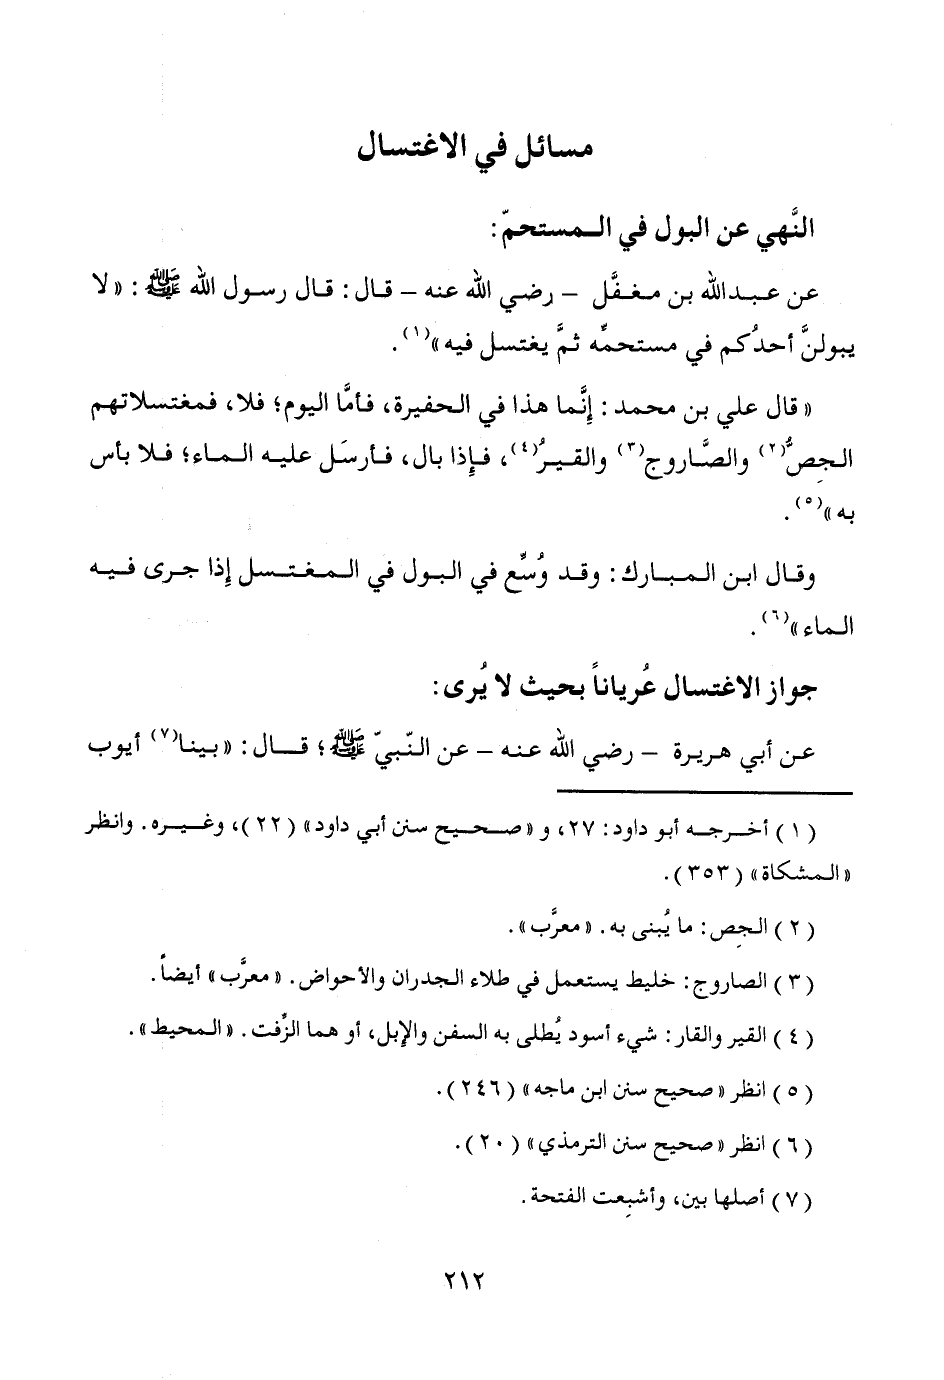 مسائل في الاغتسال
النَّهي عن البول في المستحمّ:
عن عبدالله بن مغفَّل - رضي الله عنه - قال: قال رسول الله ﷺ: «لا
يبولنَّ أحدُكم في مستحمِّه ثمَّ يغتسل فيه»(١).
«قال علي بن محمد: إِنَّما هذا في الحفيرة، فأمَّا اليوم؛ فلا، فمغتسلاتهم
الجِصُّ(٢) والصَّاروج(٣) والقيرُ(٤)، فإِذا بال، فأرسَل عليه الماء؛ فلا بأس
به»(٥).
وقال ابن المبارك: وقد وُسِّع في البول في المغتسل إِذا جرى فيه
الماء»(٦).
جواز الاغتسال عُرياناً بحيث لا يُرى:
عن أبي هريرة - رضي الله عنه - عن النّبيّ ﷺ؛ قال: «بينا(٧) أيوب
(١) أخرجه أبو داود: ٢٧، و«صحيح سنن أبي داود» (٢٢)، وغيره. وانظر
«المشكاة» (٣٥٣).
(٢) الجِص: ما يُبنى به. «معرَّب».
(٣) الصاروج: خليط يستعمل في طلاء الجدران والأحواض. «معرَّب» أيضاً.
(٤) القير والقار: شيء أسود يُطلى به السفن والإِبل، أو هما الزِّفت. «المحيط».
(٥) انظر «صحيح سنن ابن ماجه» (٢٤٦).
(٦) انظر «صحيح سنن الترمذي» (٢٠).
(٧) أصلها بين، وأشبِعت الفتحة.
٢١٢